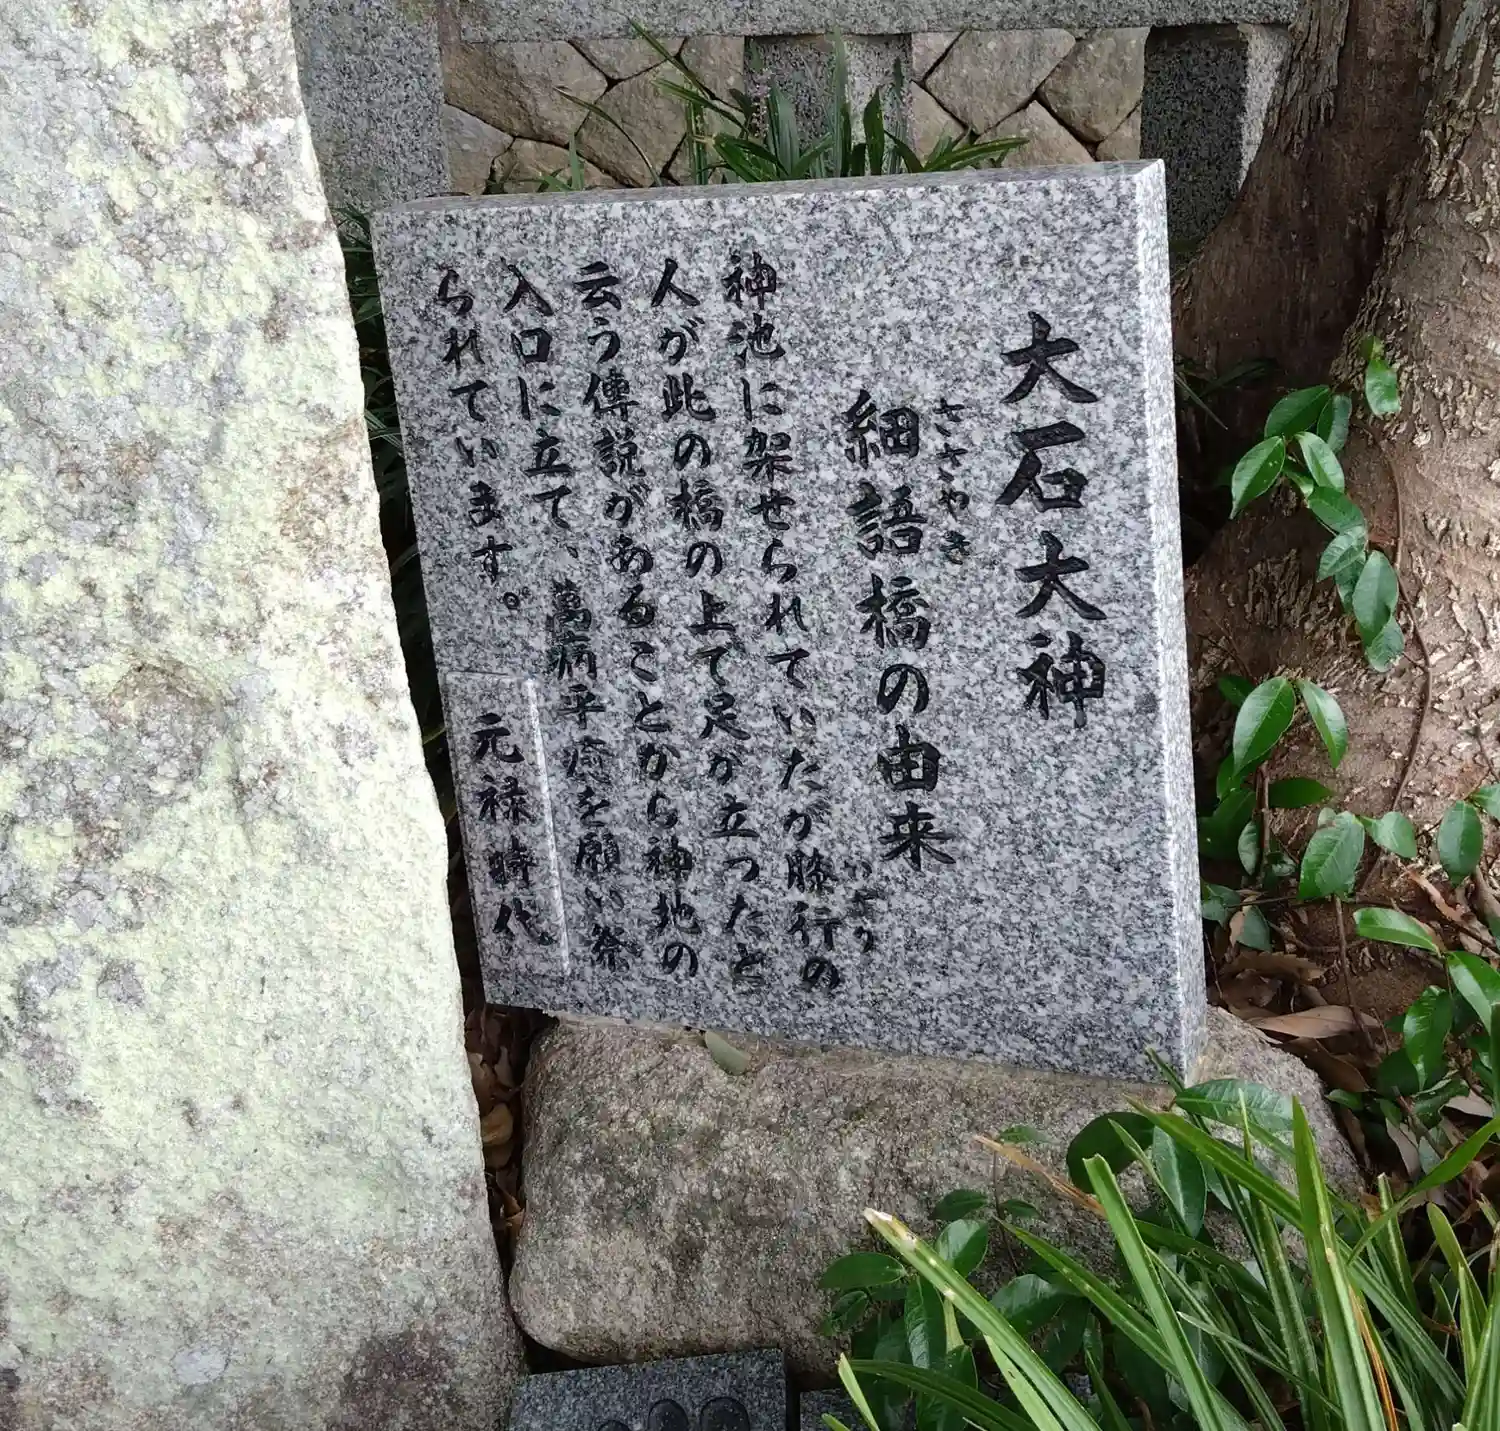 大石大神
ささやき
細語橋の由来
いざり
神池に架せられていたが膝行の
人が此の橋の上て足が立つたと
云う傳説があることから神地の
入口に立て、萬病平癒を願い祭
られています。
元禄時代